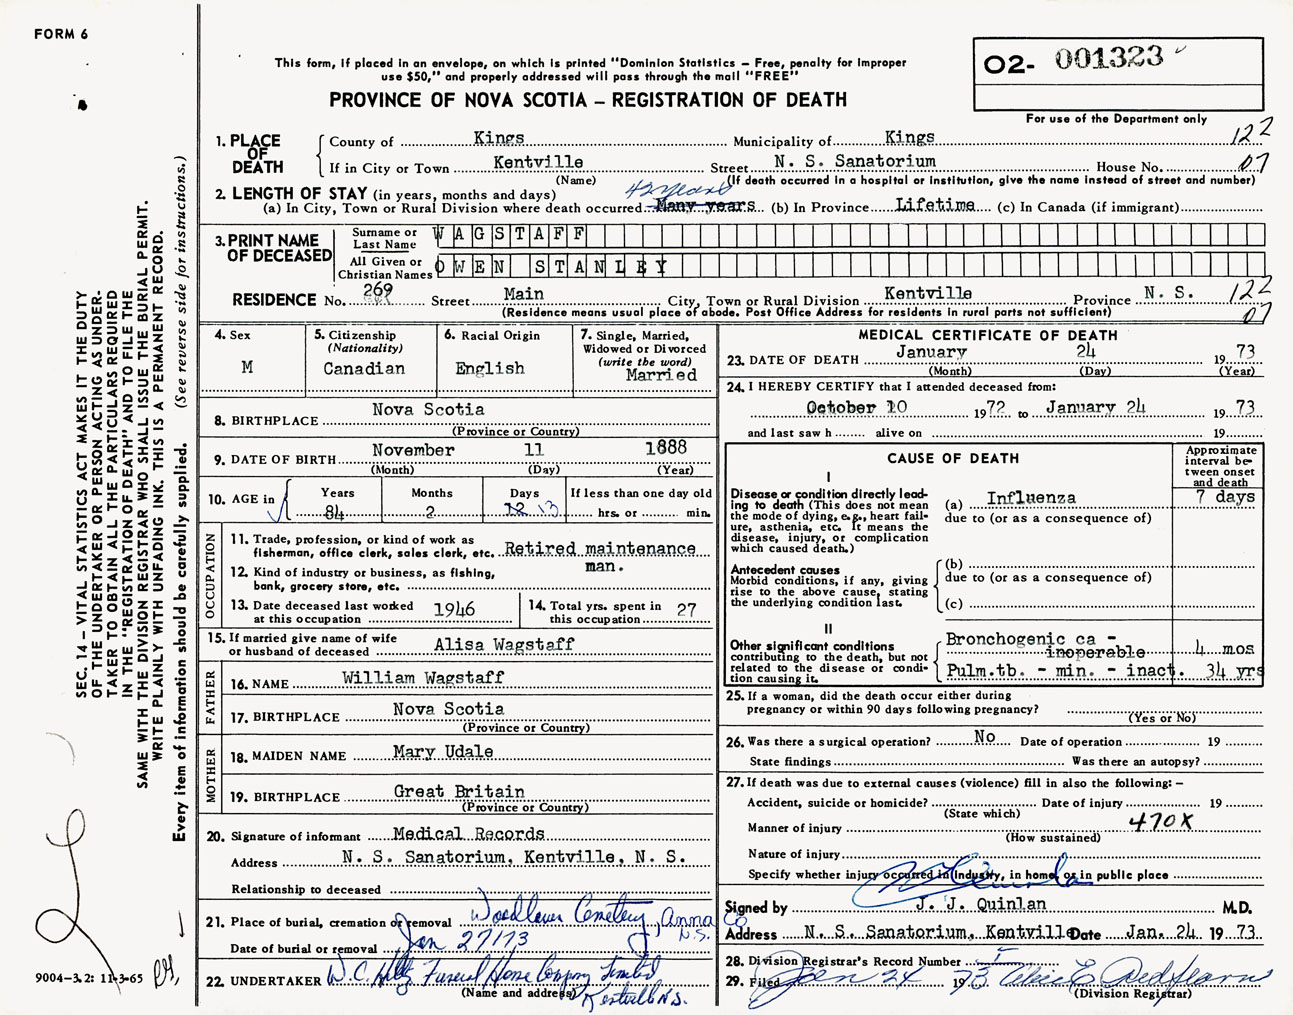 FORM 6
This form, if placed in an envelope, on which is printed "Dominion Statistics – Free, penalty for improper
use $50," and properly addressed will pass through the mail "FREE"
PROVINCE OF NOVA SCOTIA – REGISTRATION OF DEATH
02- 001323
For use of the Department only
1. PLACE OF DEATH
County of Kings Municipality of Kings 122
If in City or Town Kentville Street N. S. Sanatorium House No. 07
(Name) (If death occurred in a hospital or institution, give the name instead of street and number)
2. LENGTH OF STAY (in years, months and days) 42 years
(a) In City, Town or Rural Division where death occurred Many years (b) In Province Lifetime (c) In Canada (if immigrant)
3. PRINT NAME OF DECEASED
Surname or Last Name WAGSTAFF
All Given or Christian Names OWEN STANLEY
RESIDENCE No. 269 Street Main City, Town or Rural Division Kentville Province N. S. 122
(Residence means usual place of abode. Post Office Address for residents in rural parts not sufficient) 07
4. Sex
M
5. Citizenship
(Nationality)
Canadian
6. Racial Origin
English
7. Single, Married,
Widowed or Divorced
(write the word)
Married
8. BIRTHPLACE Nova Scotia
(Province or Country)
9. DATE OF BIRTH November 11 1888
(Month) (Day) (Year)
10. AGE in
Years Months Days If less than one day old
84 2 12 13 hrs. or min.
OCCUPATION
11. Trade, profession, or kind of work as
fisherman, office clerk, sales clerk, etc. Retired maintenance
man.
12. Kind of industry or business, as fishing,
bank, grocery store, etc.
13. Date deceased last worked
at this occupation 1946
14. Total yrs. spent in
this occupation 27
15. If married give name of wife
or husband of deceased Alisa Wagstaff
FATHER
16. NAME William Wagstaff
17. BIRTHPLACE Nova Scotia
(Province or Country)
MOTHER
18. MAIDEN NAME Mary Udale
19. BIRTHPLACE Great Britain
(Province or Country)
20. Signature of informant Medical Records
Address N. S. Sanatorium, Kentville, N. S.
Relationship to deceased
21. Place of burial, cremation or removal Woodlawn Cemetery, Anna Co
N.S.
Date of burial or removal Jan 27/73
22. UNDERTAKER W.C. Hiltz Funeral Home Company Limited
(Name and address) Kentville N.S.
MEDICAL CERTIFICATE OF DEATH
23. DATE OF DEATH January 24 1973
(Month) (Day) (Year)
24. I HEREBY CERTIFY that I attended deceased from:
October 10 1972 to January 24 1973
and last saw h alive on 19
CAUSE OF DEATH
Approximate
interval be-
tween onset
and death
I
Disease or condition directly lead-
ing to death (This does not mean
the mode of dying, e.g., heart fail-
ure, asthenia, etc. It means the
disease, injury, or complication
which caused death.)
(a) Influenza 7 days
due to (or as a consequence of)
Antecedent causes
Morbid conditions, if any, giving
rise to the above cause, stating
the underlying condition last.
(b)
due to (or as a consequence of)
(c)
II
Other significant conditions
contributing to the death, but not
related to the disease or condi-
tion causing it.
Bronchogenic ca -
inoperable 4 mos
Pulm.tb. - min. - inact. 34 yrs
25. If a woman, did the death occur either during
pregnancy or within 90 days following pregnancy?
(Yes or No)
26. Was there a surgical operation? No Date of operation 19
State findings Was there an autopsy?
27. If death was due to external causes (violence) fill in also the following: –
Accident, suicide or homicide? Date of injury 19
(State which)
Manner of injury 470X
(How sustained)
Nature of injury
Specify whether injury occurred in industry, in home, or in public place
Signed by J. J. Quinlan M.D.
Address N. S. Sanatorium, Kentville Date Jan. 24 1973.
28. Division Registrar's Record Number
29. Filed Jan 24 1973
(Division Registrar)
SEC. 14 – VITAL STATISTICS ACT MAKES IT THE DUTY
OF THE UNDERTAKER OR PERSON ACTING AS UNDER-
TAKER TO OBTAIN ALL THE PARTICULARS REQUIRED
IN THE "REGISTRATION OF DEATH" AND TO FILE THE
SAME WITH THE DIVISION REGISTRAR WHO SHALL ISSUE THE BURIAL PERMIT.
WRITE PLAINLY WITH UNFADING INK. THIS IS A PERMANENT RECORD.
Every item of information should be carefully supplied. (See reverse side for instructions.)
9004-3.2: 11-3-65